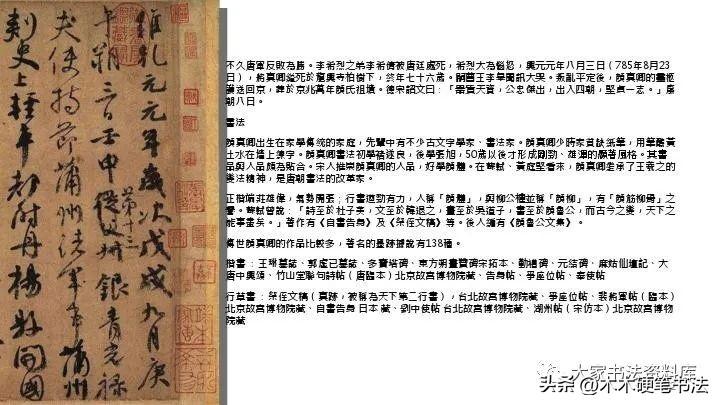 維乾元元年歲次戊戌九月庚
午朔三日壬申第十三叔銀青光祿
夫使持節蒲州諸軍事蒲州
刺史上輕車都尉丹楊縣開國
不久唐軍反敗為勝。李希烈之弟李希倩被唐廷處死，希烈大為惱怒，興元元年八月三日（785年8月23
日），將真卿縊死於龍興寺柏樹下，終年七十六歲。嗣曹王李皋聞訊大哭。叛亂平定後，顏真卿的靈柩
護送回京，葬於京兆萬年顏氏祖塋。德宗詔文曰：「器質天資，公忠傑出，出入四朝，堅貞一志。」廢
朝八日。
書法
顏真卿出生在家學傳統的家庭，先輩中有不少古文字學家、書法家。顏真卿少時家貧缺紙筆，用筆醮黃
土水在墙上練字。顏真卿書法初學褚遂良，後學張旭，50歲以後才形成剛勁、雄渾的顯著風格。其書
品與人品頗為貼合。宋人推崇顏真卿的人品，好學顏體。在蘇軾、黃庭堅看來，顏真卿繼承了王羲之的
變法精神，是唐朝書法的改革家。
正楷端莊雄偉，氣勢開張；行書遒勁有力，人稱「顏體」，與柳公權並稱「顏柳」，有「顏筋柳骨」之
譽。蘇軾曾說：「詩至於杜子美，文至於韓退之，畫至於吳道子，書至於顏魯公，而古今之變，天下之
能事畫矣。」著作有《自書告身》及《祭侄文稿》等。後人輯有《顏魯公文集》。
傳世顏真卿的作品比較多，著名的墨跡據說有138種。
楷書：王琳墓誌、郭虛己墓誌、多寶塔碑、東方朔畫贊碑宋拓本、勤禮碑、元結碑、麻姑仙壇記、大
唐中興頌、竹山堂聯句詩帖（唐臨本）北京故宮博物院藏、告身帖、爭座位帖、奉使帖
行草書：祭侄文稿（真跡，被稱為天下第二行書），台北故宮博物院藏、爭座位帖、裴將軍帖（臨本）
北京故宮博物院藏、自書告身 日本 藏、劉中使帖 台北故宮博物院藏、湖州帖（宋仿本）北京故宮博物
院藏
大家书法资料库
头条 @木木硬笔书法